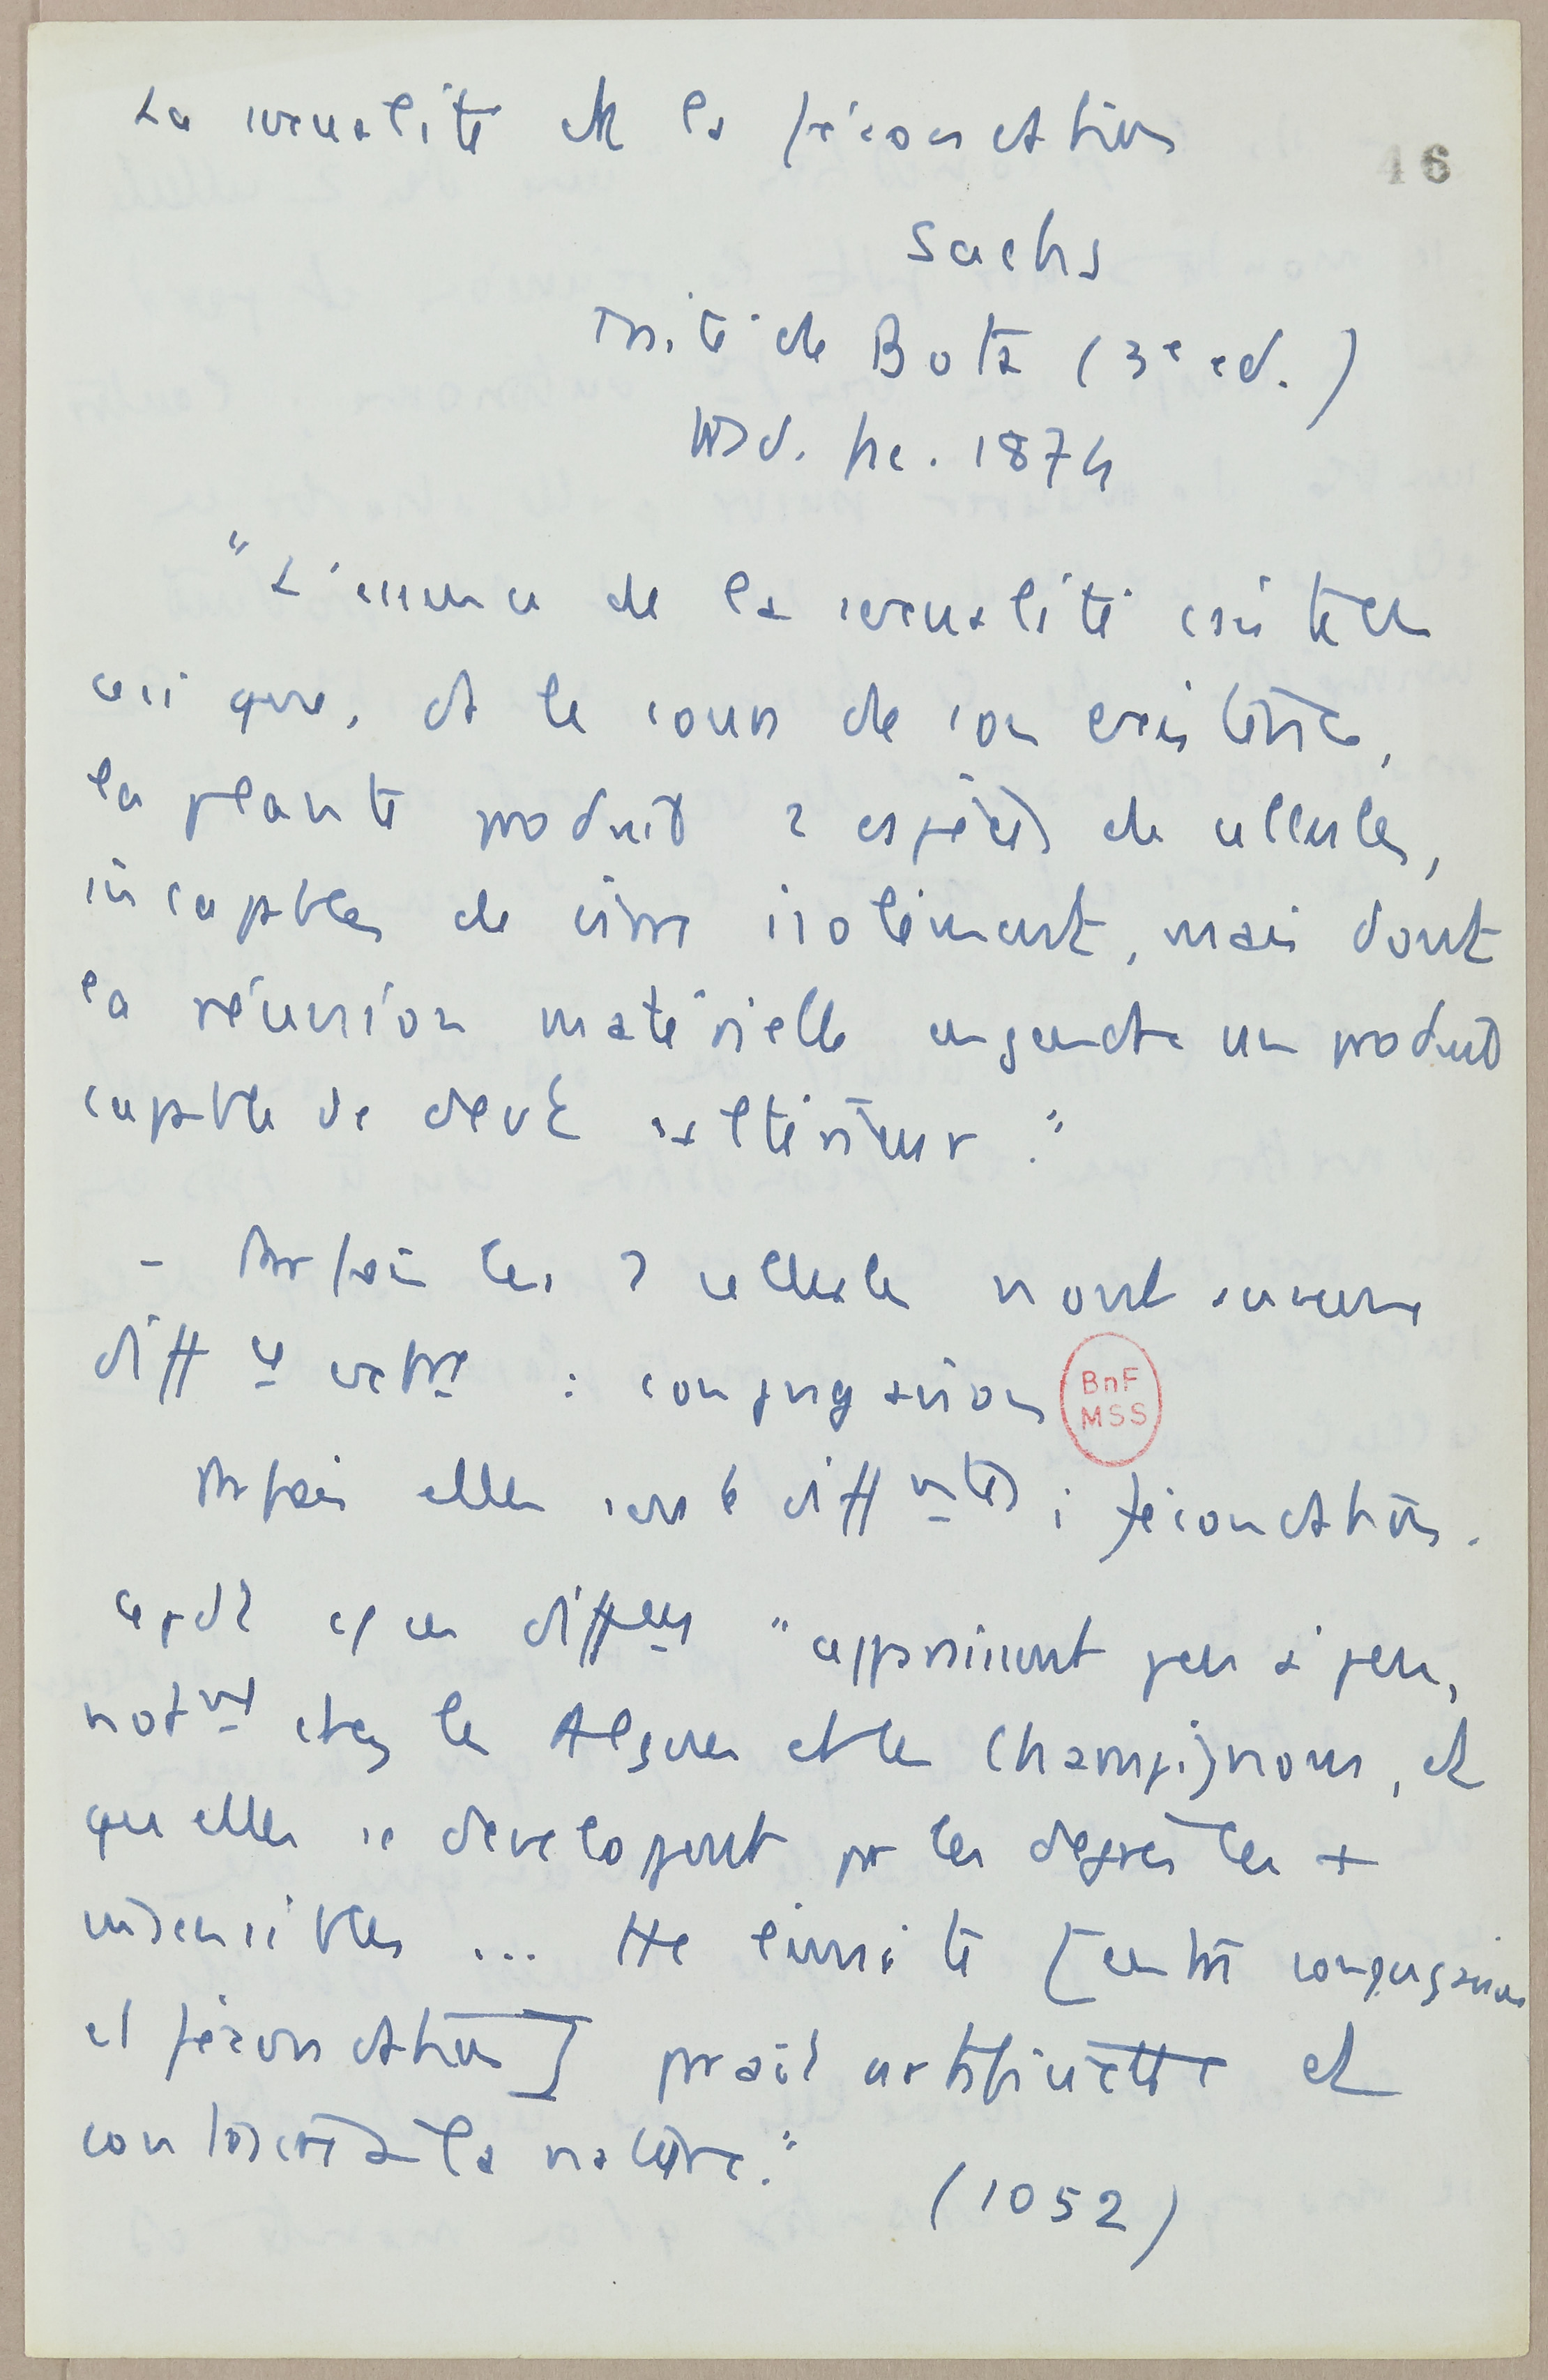 La sexualité et la fécondation
46
Sachs
Traité de Bota (3e ed.)
trad. fr. 1874
"L'essence de la sexualité consiste en
ceci que, ds le cours de son existence,
la plante produit 2 espèces de cellules,
incapables de vivre isolément, mais dont
la réunion matérielle engendre un produit
capable de devt ultérieur."
- Parfois les 2 cellules n'ont aucune
diff ce : conjugaison
BnF
MSS
Parfois elles sont diff ntes ; fécondation.
cpdt ces diff ces "apparaissent peu à peu,
notamt chez les Algues et les Champignons, et
qu'elles se developpent par les degrés les +
insensibles ... Tte limite [entre conjugaison
et fécondation] paraît artificielle et
contraire à la nature."
(1052)